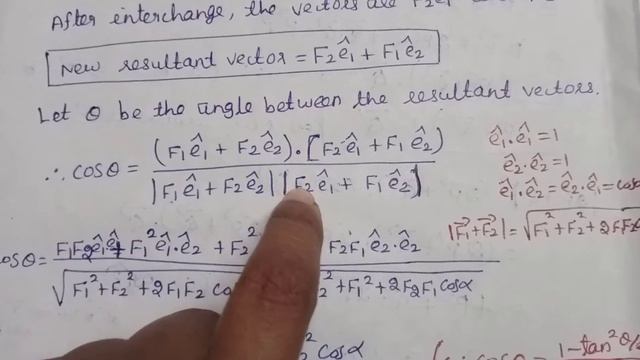 After interchange, the vectors are F₂ê₁
New resultant vector = F₂ê₁ + F₁ê₂
Let θ be the angle between the resultant vectors.
∴ cosθ = (F₁ê₁ + F₂ê₂)·[F₂ê₁ + F₁ê₂] / |F₁ê₁ + F₂ê₂| |F₂ê₁ + F₁ê₂|
ê₁·ê₁ = 1
ê₂·ê₂ = 1
ê₁·ê₂ = ê₂·ê₁ = cos
|F⃗₁+F⃗₂| = √F₁² + F₂² + 2FF₂
cosθ = F₁F₂ê₁ê₁ + F₁²ê₁·ê₂ + F₂² F₂F₁ê₂·ê₂ / √F₁² + F₂² + 2F₁F₂ co ² + F₁² + 2F₂F₁cosα
² cosα
1 − tan²θ/